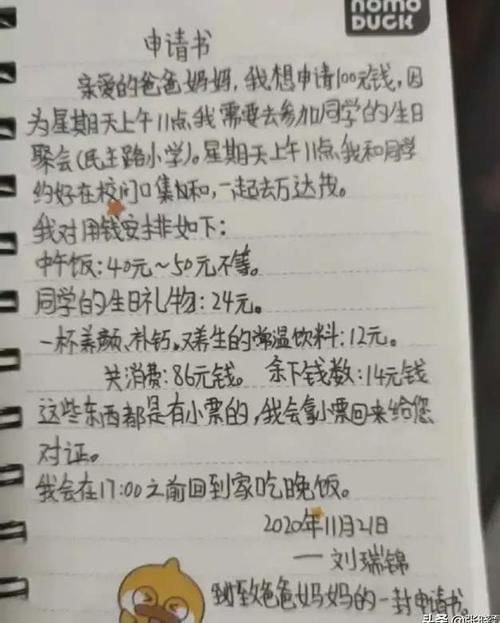 nomo
DUCK
申请书
亲爱的爸爸妈妈,我想申请100元钱,因
为星期天上午11点我需要去参加同学的生日
聚会(民主路小学)。星期天上午11点,我和同学
约好在校门口集和,一起去万达茂。
我对用钱安排如下:
中午饭:40元~50元不等。
同学的生日礼物:24元。
一杯养颜、补钙,又养生的常温饮料:12元。
共消费:86元钱。 余下钱数:14元钱
这些东西都是有小票的,我会拿小票回来给您
对证。
我会在17:00之前回到家吃晚饭。
2020年11月21日
——刘瑞锦
致爸爸妈妈的一封申请书。
头条